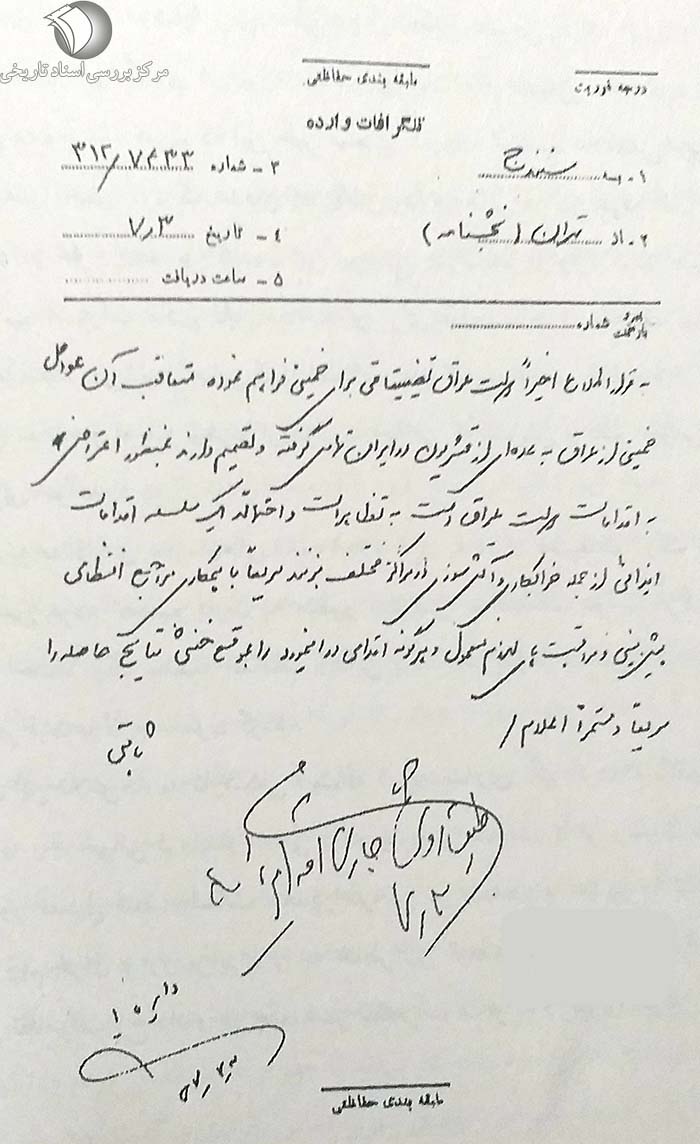 مرکز بررسی اسناد تاریخی
طبقه بندی حفاظتی
درجه فوریت
تلگرافات وارده
۱ - به سنندج
۲ - از تهران (بخشنامه)
۳ - شماره ۳۱۲/۷۴۳۳
۴ - تاریخ ۷٫۳
۵ - ساعت دریافت
پیرو
بازگشت شماره
به قرار اطلاع اخیراً دولت عراق تضییقاتی برای خمینی فراهم نموده متعاقب آن عوامل
خمینی از عراق به عده‌ای از قشریون در ایران تماس گرفته و تصمیم دارند بمنظور اعتراض
به اقدامات دولت عراق دست به تظاهرات و احتمالاً یک سلسله اقدامات
ایذائی از جمله خرابکاری و آتش سوزی در مراکز مختلف بزنند سریعاً با همکاری مراجع انتظامی
پیش بینی و مراقبت های لازم معمول و هرگونه اقدامی در این مورد را بموقع خنثی نتایج حاصله را
سریعاً و مستمراً اعلام/
ثابتی
طبق اوامر جاری اقدام
۷٫۳
دایره ۱